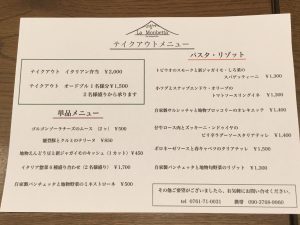 La Monbetta
テイクアウトメニュー
テイクアウト イタリアン弁当 ¥2,000
テイクアウト オードブル1名様分¥1,500
2名様盛りから承ります
単品メニュー
ゴルゴンゾーラチーズのムース (2ヶ) ¥500
能登豚とクルミのテリーヌ ¥850
地物えんどう豆と新ジャガイモのキッシュ(1カット) ¥450
イタリア惣菜4種盛り合わせ(2名様盛り) ¥1,700
自家製パンチェッタと地物野菜のミネストローネ ¥500
パスタ・リゾット
トビウオのスモークと新ジャガイモ・しろ菜の
スパゲッティーニ ¥1,300
ホタテとスナップエンドウ・オリーブの
トマトソースリングイネ ¥1,300
自家製サルシッチャと地物ブロッコリーのオレキエッテ ¥1,400
甘牛ロース肉とズッキーニ・ンドゥイヤの
ピリ辛ラグーソースタリアテッレ ¥1,500
ボロネーゼソースと春キャベツのタリアテッレ ¥1,500
自家製パンチェッタと地物旬野菜のリゾット ¥1,300
その他ご要望がございましたら、お気軽にお問い合せください。
tel 0761-71-0031 携帯 090-3768-9960